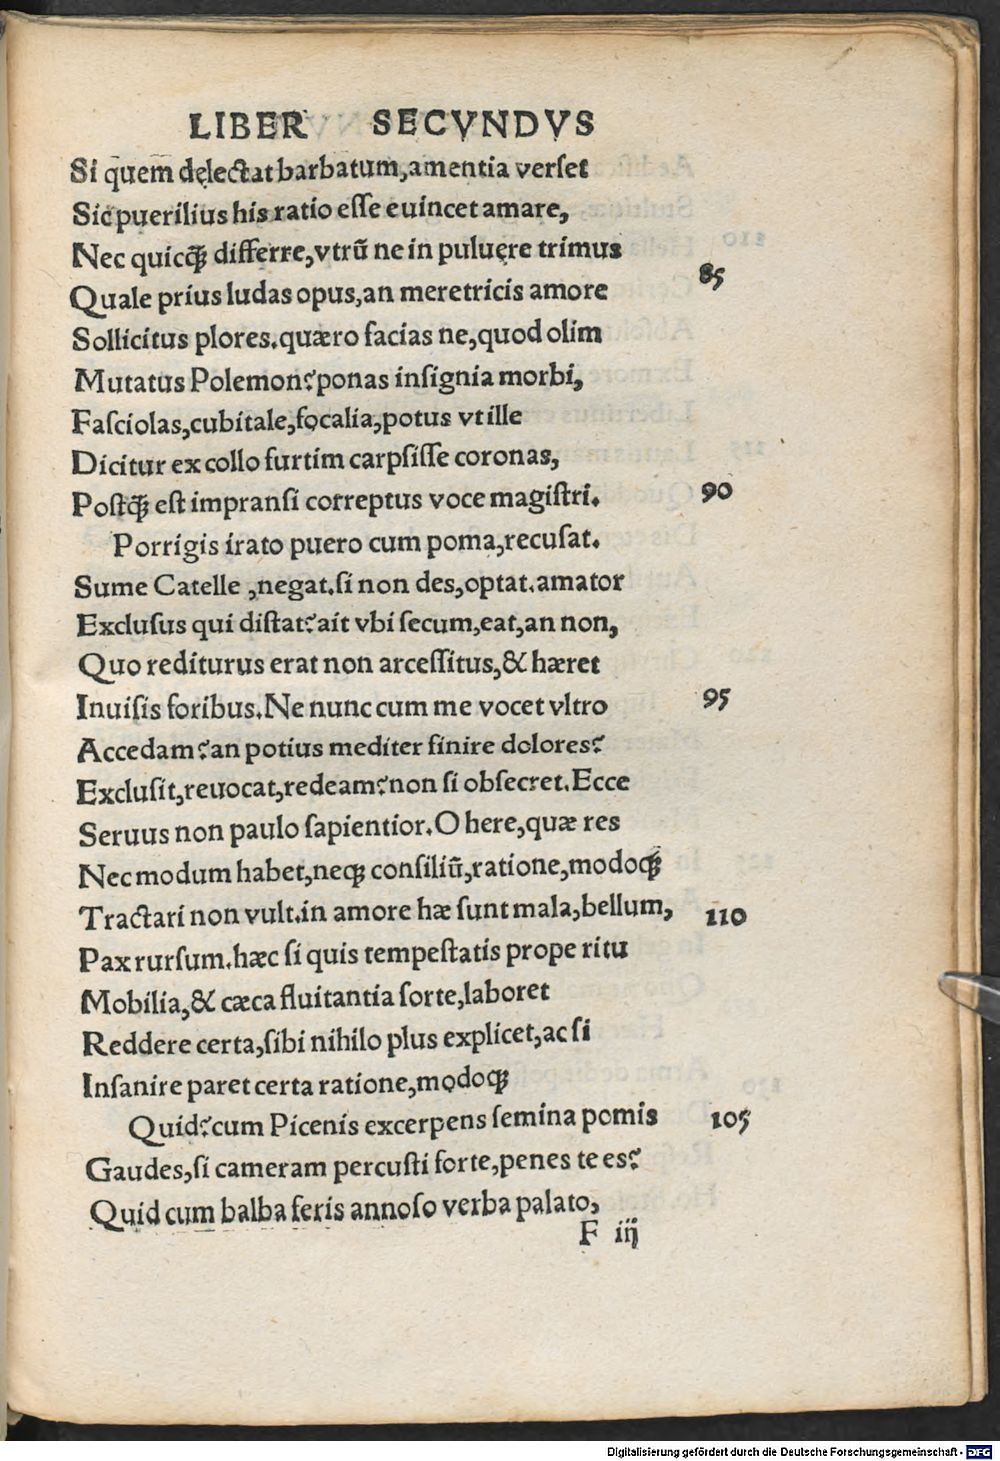 LIBER SECVNDVS
Si quem delectat barbatum,amentia verſet
Sic puerilius his ratio eſſe euincet amare,
Nec quicq̃ differre,vtrũ ne in puluęre trimus
85
Quale prius ludas opus,an meretricis amore
Sollicitus plores.quæro facias ne,quod olim
Mutatus Polemon?ponas inſignia morbi,
Faſciolas,cubitale,focalia,potus vt ille
Dicitur ex collo furtim carpſiſſe coronas,
Poſtq̃ eſt impranſi correptus voce magiſtri. 90
Porrigis irato puero cum poma,recuſat.
Sume Catelle ,negat.ſi non des,optat.amator
Excluſus qui diſtat?ait vbi ſecum,eat,an non,
Quo rediturus erat non arceſſitus,& hæret
Inuiſis foribus.Ne nunc cum me vocet vltro 95
Accedam?an potius mediter finire dolores?
Excluſit,reuocat,redeam?non ſi obſecret.Ecce
Seruus non paulo ſapientior.O here,quæ res
Nec modum habet,neqꝫ conſiliũ,ratione,modoqꝫ
Tractari non vult.in amore hæ ſunt mala,bellum, 110
Pax rurſum.hæc ſi quis tempeſtatis prope ritu
Mobilia,& cæca fluitantia ſorte,laboret
Reddere certa,ſibi nihilo plus explicet,ac ſi
Inſanire paret certa ratione,modoqꝫ
Quid?cum Picenis excerpens ſemina pomis 105
Gaudes,ſi cameram percuſti forte,penes te es?
Quid cum balba feris annoſo verba palato,
F iij
Digitalisierung gefördert durch die Deutsche Forschungsgemeinschaft - DFG